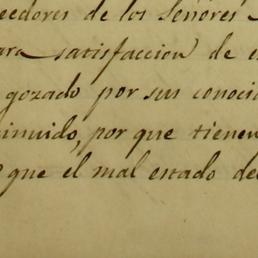 eedores de los Señores
ara satisfaccion de e
gozado por sus conoci
inuido, por que tienen
que el mal estado de